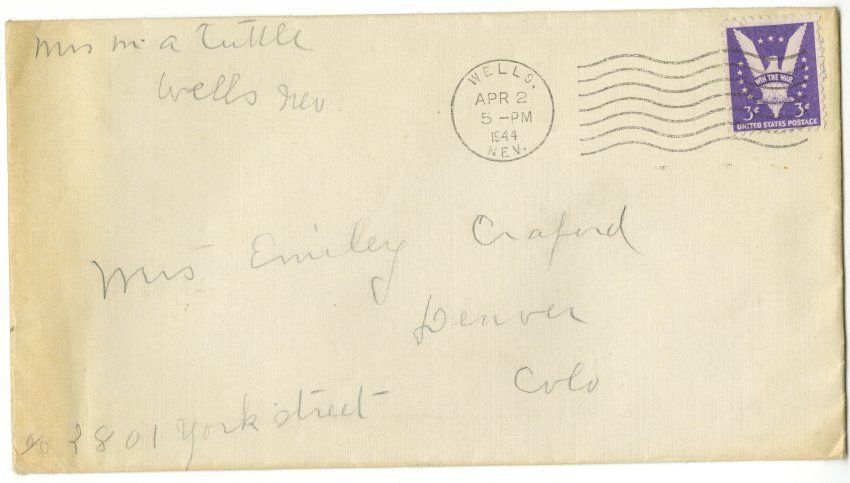 Mrs M. A Tuttle
Wells Nev
WELLS,
APR 2
5 - PM
1944
NEV.
WIN THE WAR
3¢ 3¢
UNITED STATES POSTAGE
Mrs Emiley Craford
Denver
Colo
2801 York street